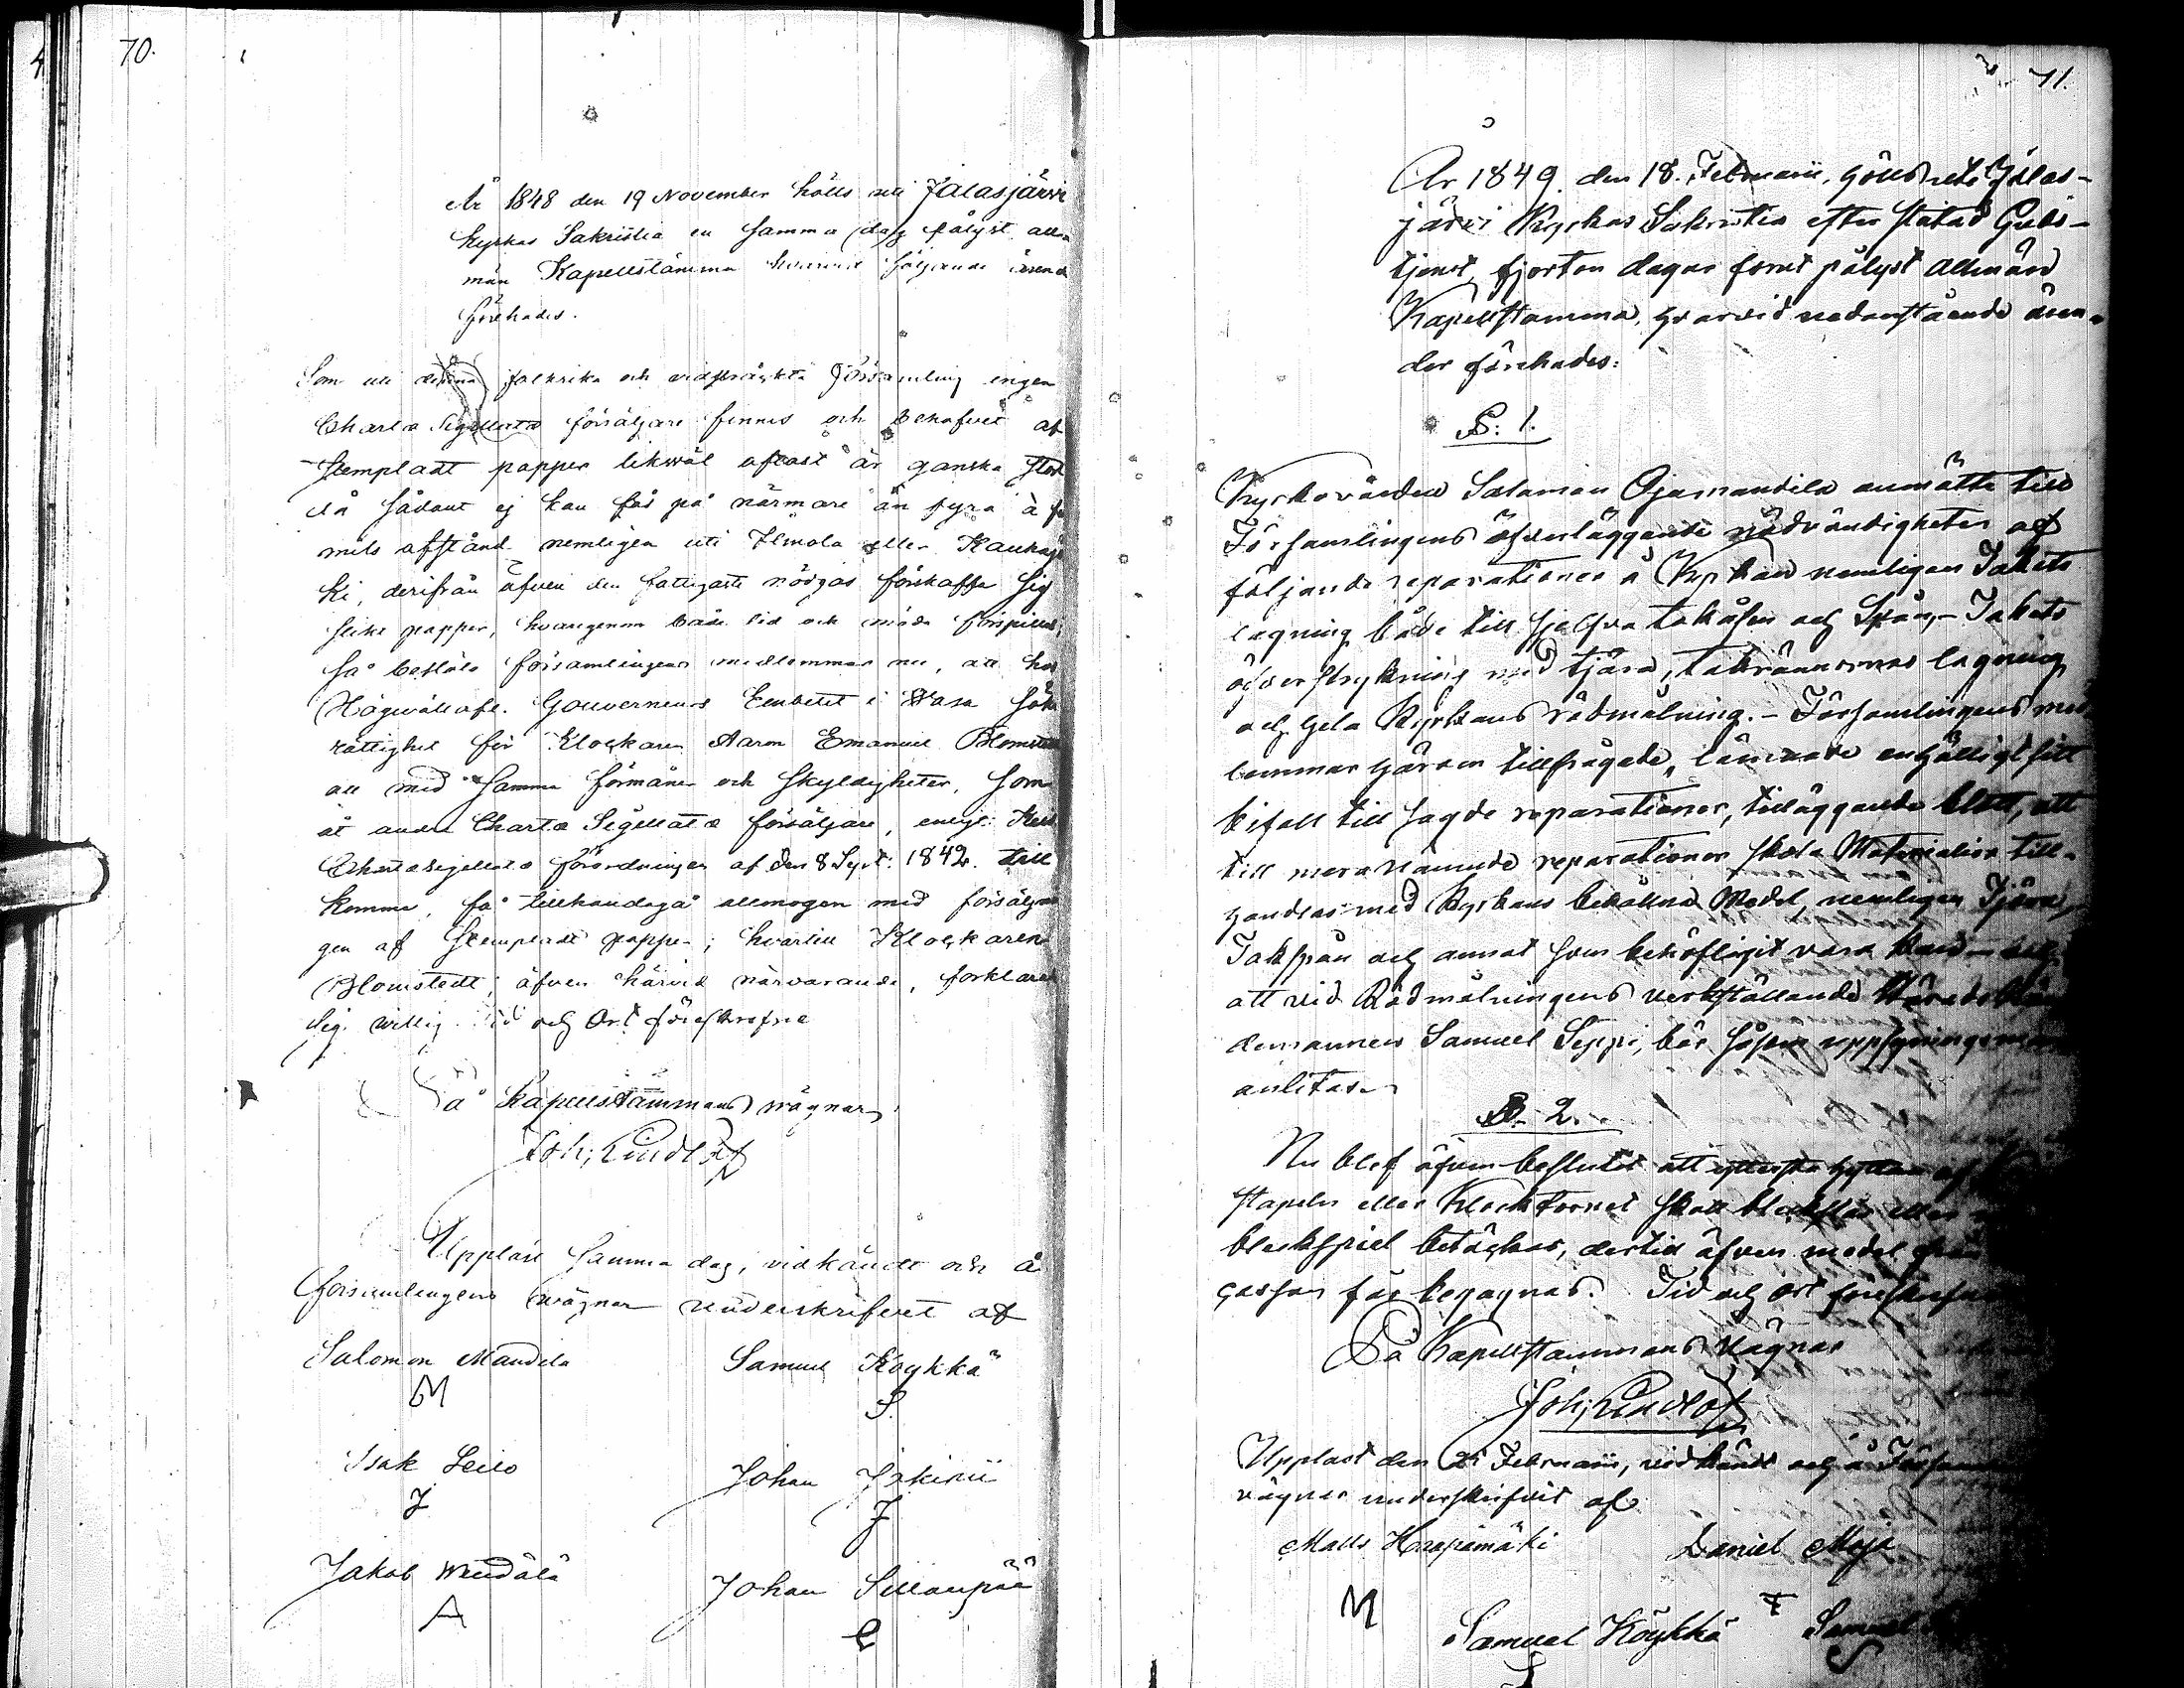 70.
År 1848 den 19 November hölls uti Jalasjärvi
kyrkas Sakristia en samma dag pålyst all
män Kapellstämma hvarvid följande ärend
förehades.
Som uti denna folkrika och vidsträckta Församling ingen
Charta Sigillata försäljare finnes och behofvet af
Stempladt papper likväl oftast är ganska stort
då sådant ej kan fås på närmare än fyra à
mils afstånd nemligen uti Ilmola eller Kauhajo
ki, derifrån äfven den fattigaste nödgas förskaffa sig
slikt papper, hvarigenom både tid och möda förspilles;
så beslöto församlingens medlemmar nu, att hos
Högvällofl. Gouverneurs Embetet i Wasa söka
rättighet för Klockaren Aaron Emanuel Blomstedt
att med samma förmåner och skyldigheter, som
åt andra Charta Sigillata försäljare, enligt
Chartæsigillatæ förordningen af den 8 Sept: 1842. till
komma, få tillhandagå allmogen med försäljnin
gen af Stempladt papper; hvartill Klockaren
Blomstedt, äfven härvid närvarande, förklarade
sig villig. Tid och Ort föreskrefne
På Kapellstämmans wägnar
Joh; Lindlöf
Uppläst samma dag, vidkändt och å
församlingens wägnar underskrifvet af
Salomon Mandila Samuel Köykkä
M S.
Isak Leilo Johan
J J
Jakob Johan Sillanpää
A
71.
År 1849. den 18. Februarii, hölls uti Jalas-
järvi Kyrkas Sakristia efter slutad Guds-
tjenst, fjorton dagar förut pålyst allmän
Kapellstämma, hvarvid nedanstående ären-
der förehades:
§: 1.
Kyrkovärden Salomon Ojamandila anmälte till
Församlingens öfverläggande nödvändigheten af
följande reparationer å Kyrkan nemligen Takets
lagning både till sjelfva takåsen och Spån,- Takets
öfverstrykning med tjära, takrännornas lagning
och hela Kyrkans rödmålning.- Församlingens med
lemmar härom tillfrågade, lämnade enhälligt sitt
bifall till sagde reparationer, tilläggande blott, att
till mera nämnde reparationer skola Materialier till-
handlas med Kyrkans behållna Medel, nemligen Tjära,
Takspån och annat som behöfligit vara kan - och
att vid Rödmålningens verkställande Härads
demannen Samuel Seppi, bör såsom uppsyningsman
anlitas.
§. 2.
Nu blef äfven beslutet att yttersta af
stapeln eller Klocktornet skall bleckslås eller
bleckspiel betäckas, dertill äfven medel från
cassan får begagnas. Tid och ort föreskrefne
På Kapellstämmans Wägnar
Joh; Lindlöf
Uppläst den 25 Februarii, vidkändt och å Församl
vägnar underskrifvit af
Matts Haapamäki Daniel
M
Samuel Köykkä Samuel
S